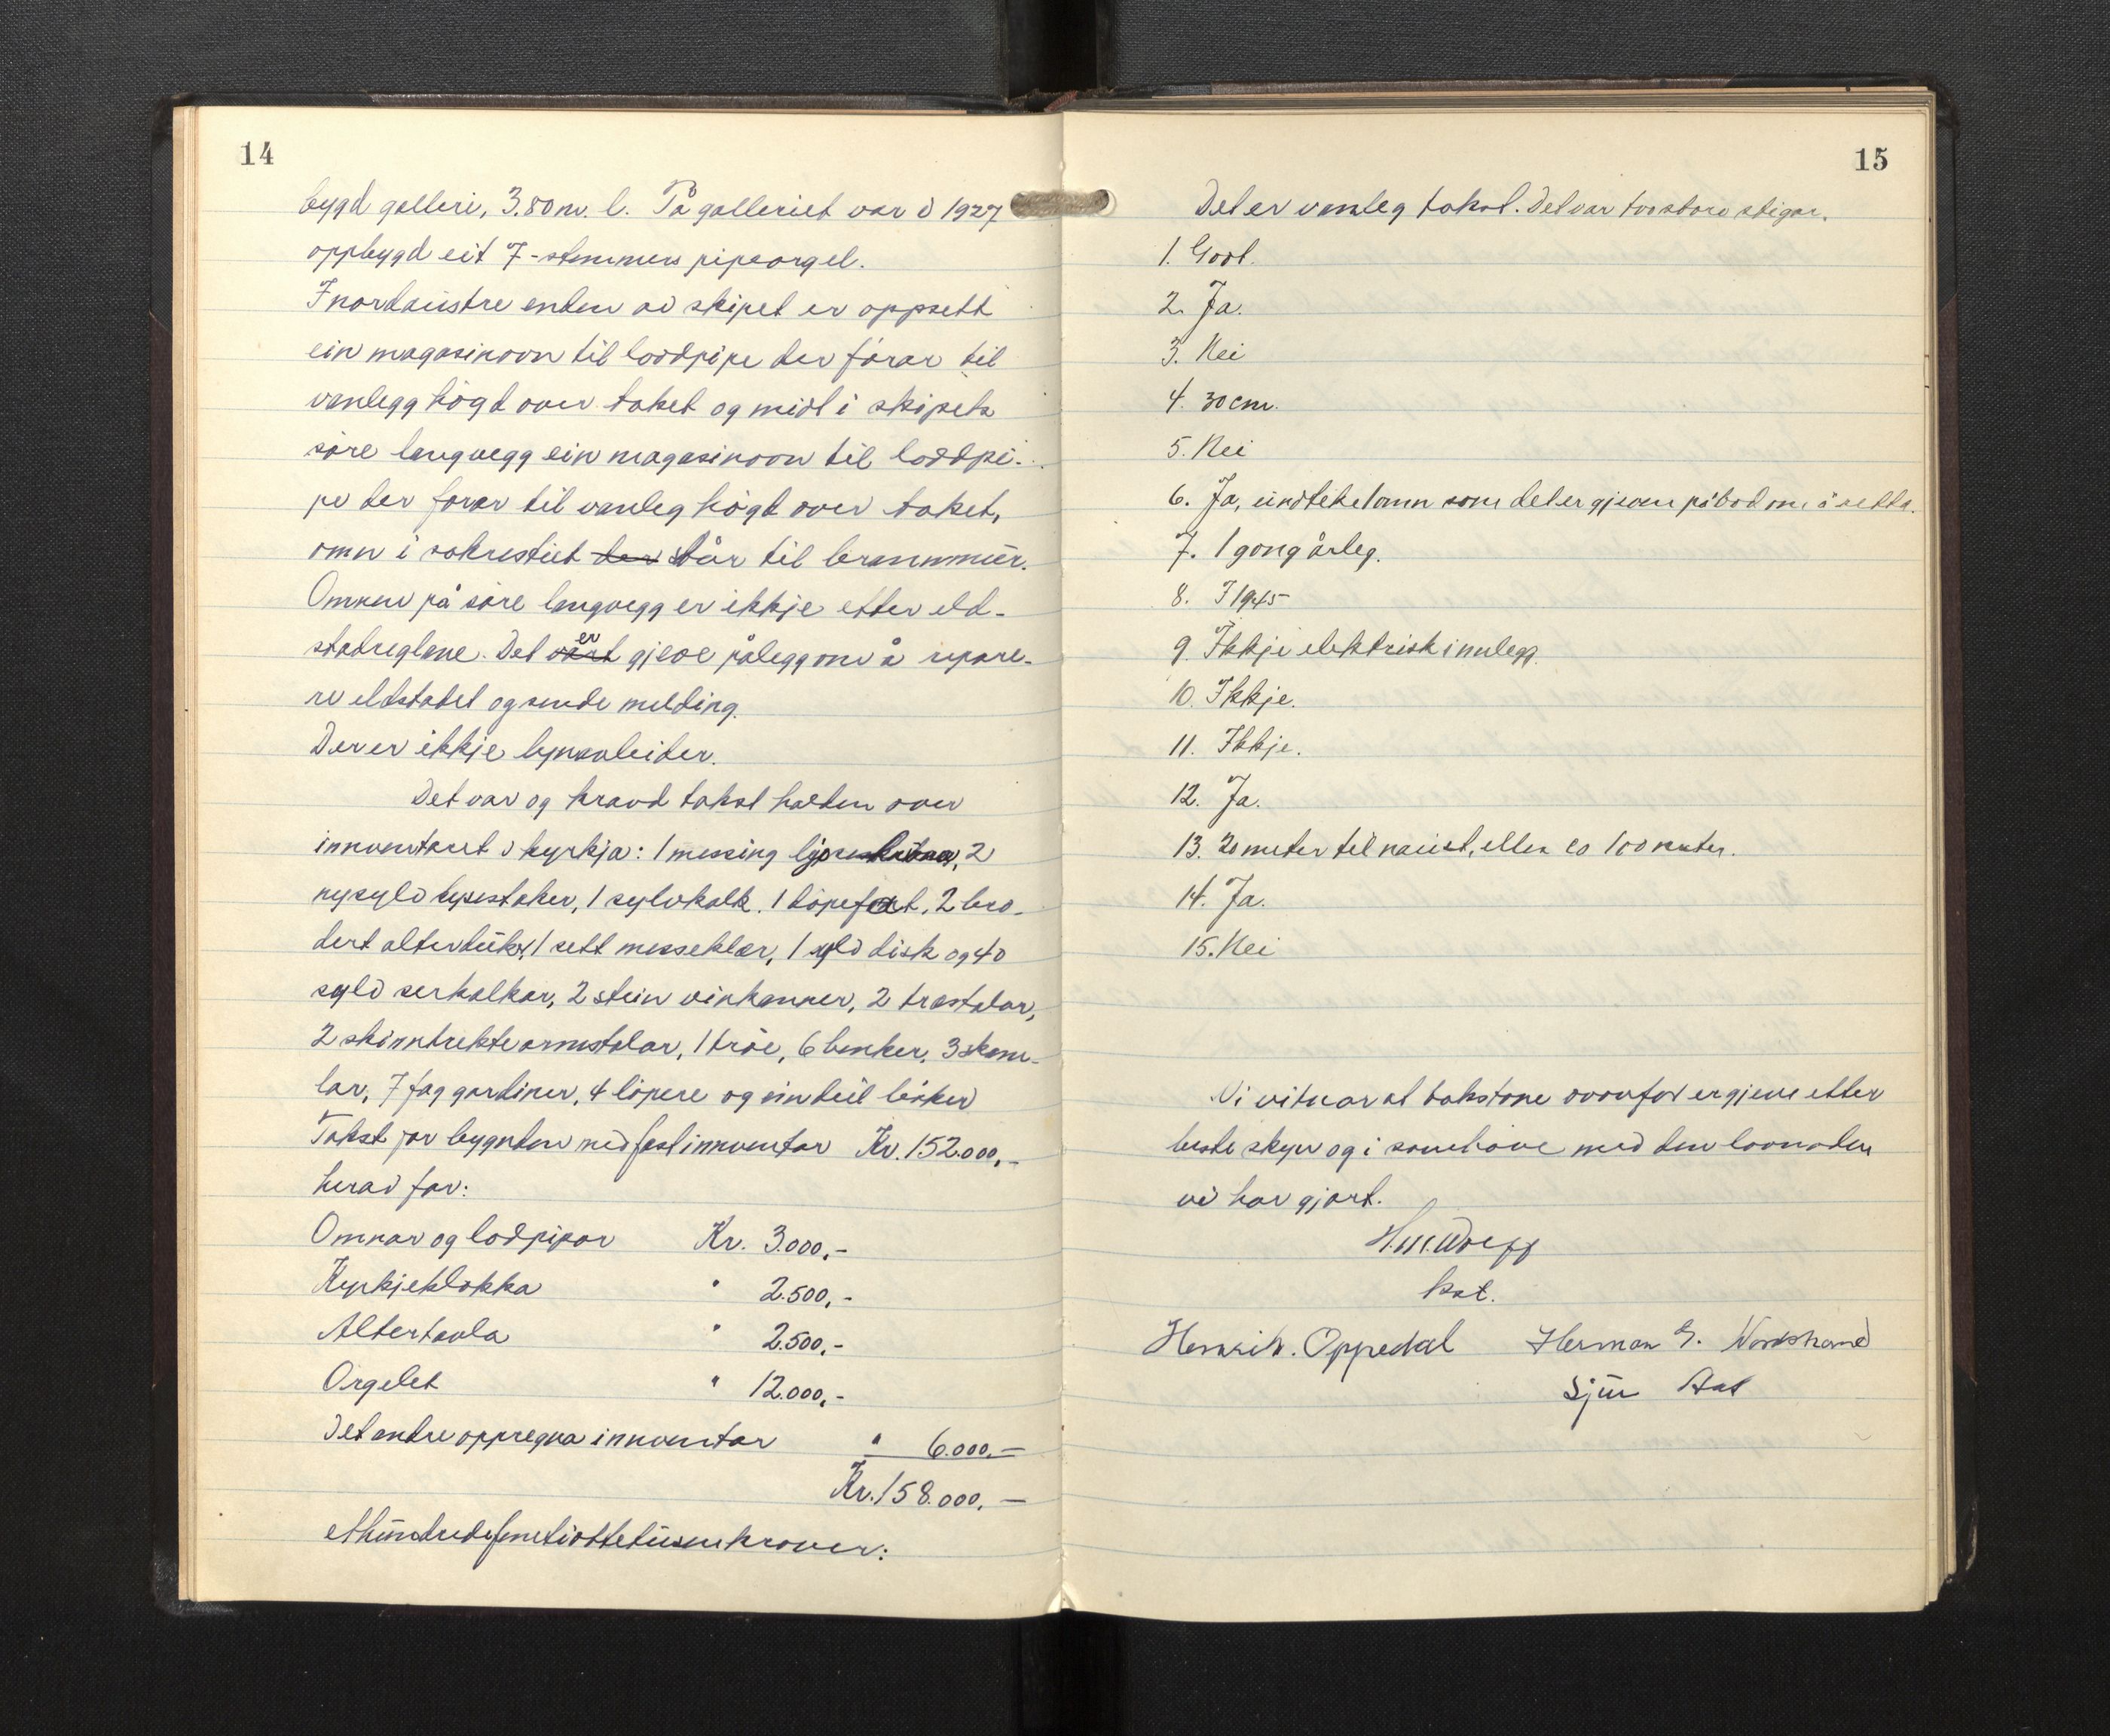 14
bygd galleri, 3.80 m. l. På galleriet var i 1927
oppbygd eit 7-stemmers pipeorgel.
I nordaustre enden av skipet er oppsett
ein magasinovn til loddpipe der förar til
vanlegg högd over taket og midt i skipets
söre langvegg ein magasinovn til loddpi-
pe der förar til vanleg högd over taket,
omn i sakrestiet der står til brannmur.
Omnen på söre langvegg er ikkje etter eld-
stadreglane. Det vart er gjeve pålegg om å repare-
re eldstadet og sende melding.
Der er ikkje lynavleider.
Det var og kravd takst halden over
innventaret i kyrkja: 1 messing 2
nysylv lysestaker, 1 sylvkalk. 1 döpefat, 2 bro-
dert alterduk, 1 sett messeklær, 1 sylv disk og 40
sylv serkalkar, 2 stein vinkanner, 2 trestolar,
2 skinntrekte armstolar, 1 tröe, 6 benker, 3 skam-
lar, 7 fag gardiner, 4 löpere og ein deil böker
Takst for bygnden med fast innventar Kr. 152.000,-
herav for:
Omnar og lodpipor Kr. 3.000,-
Kyrkjeklokka " 2.500,-
Altertavla " 2.500,-
Orgelet " 12.000,-
Det andre oppregna innventar " 6.000.-
Kr. 158.000.-
ethundredefemtiottetusen kroner:
15
Det er vanleg takst. Det var tvo store stigar.
1. Godt.
2. Ja.
3. Nei
4. 30 cm.
5. Nei
6. Ja, undteke 1 omn som det er gjeven påbod om å retta.
7. 1 gong årleg.
8. I 1945
9. Ikkje elektrisk innlegg.
10. Ikkje.
11. Ikkje.
12. Ja.
13. 20 meter til naust, ellers ca 100 meter.
14. Ja.
15. Nei
Vi vitnar at takstane ovanfor er gjeve etter
beste skyn og i samhöve med den lovnaden
vi har gjort.
Henrik. Oppedal Herman G. Nordstrand
Sjur Aas